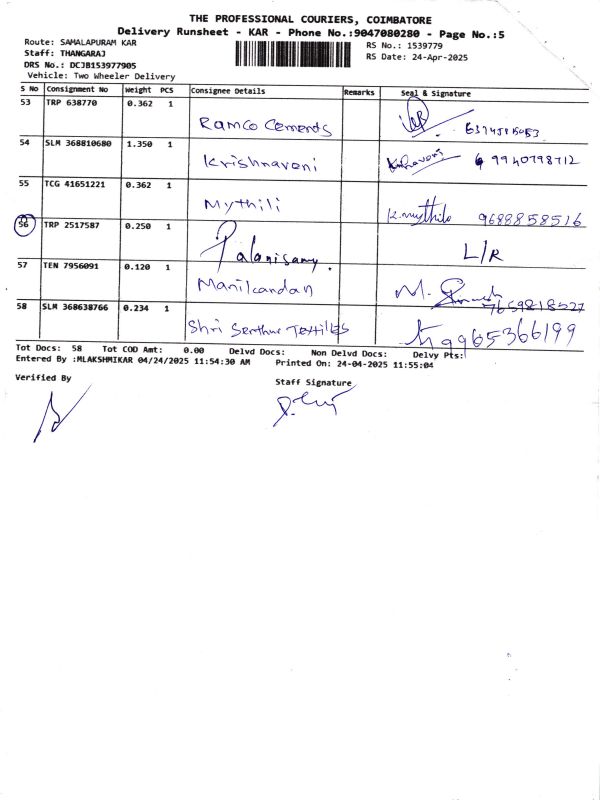 THE PROFESSIONAL COURIERS, COIMBATORE
Delivery Runsheet - KAR - Phone No.:9047080280 - Page No.:5
Route: SAMALAPURAM KAR
RS No.: 1539779
Staff: THANGARAJ
RS Date: 24-Apr-2025
DRS No.: DCJB153977905
Vehicle: Two Wheeler Delivery
S No Consignment No Weight PCS Consignee Details Remarks Seal & Signature
53 TRP 638770 0.362 1
Ramco Cements
54 SLM 368810680 1.350 1
Krishnaveni 9940798712
55 TCG 41651221 0.362 1
Mythili K.mythili 9688858516
56 TRP 2517587 0.250 1
Palanisamy. L/R
57 TEN 7956091 0.120 1
Manikandan M.
7659818527
58 SLM 368638766 0.234 1
Shri Senthur Textiles 9965366199
Tot Docs: 58 Tot COD Amt: 0.00 Delvd Docs: Non Delvd Docs: Delvy Pts:
Entered By :MLAKSHMIKAR 04/24/2025 11:54:30 AM Printed On: 24-04-2025 11:55:04
Verified By
Staff Signature